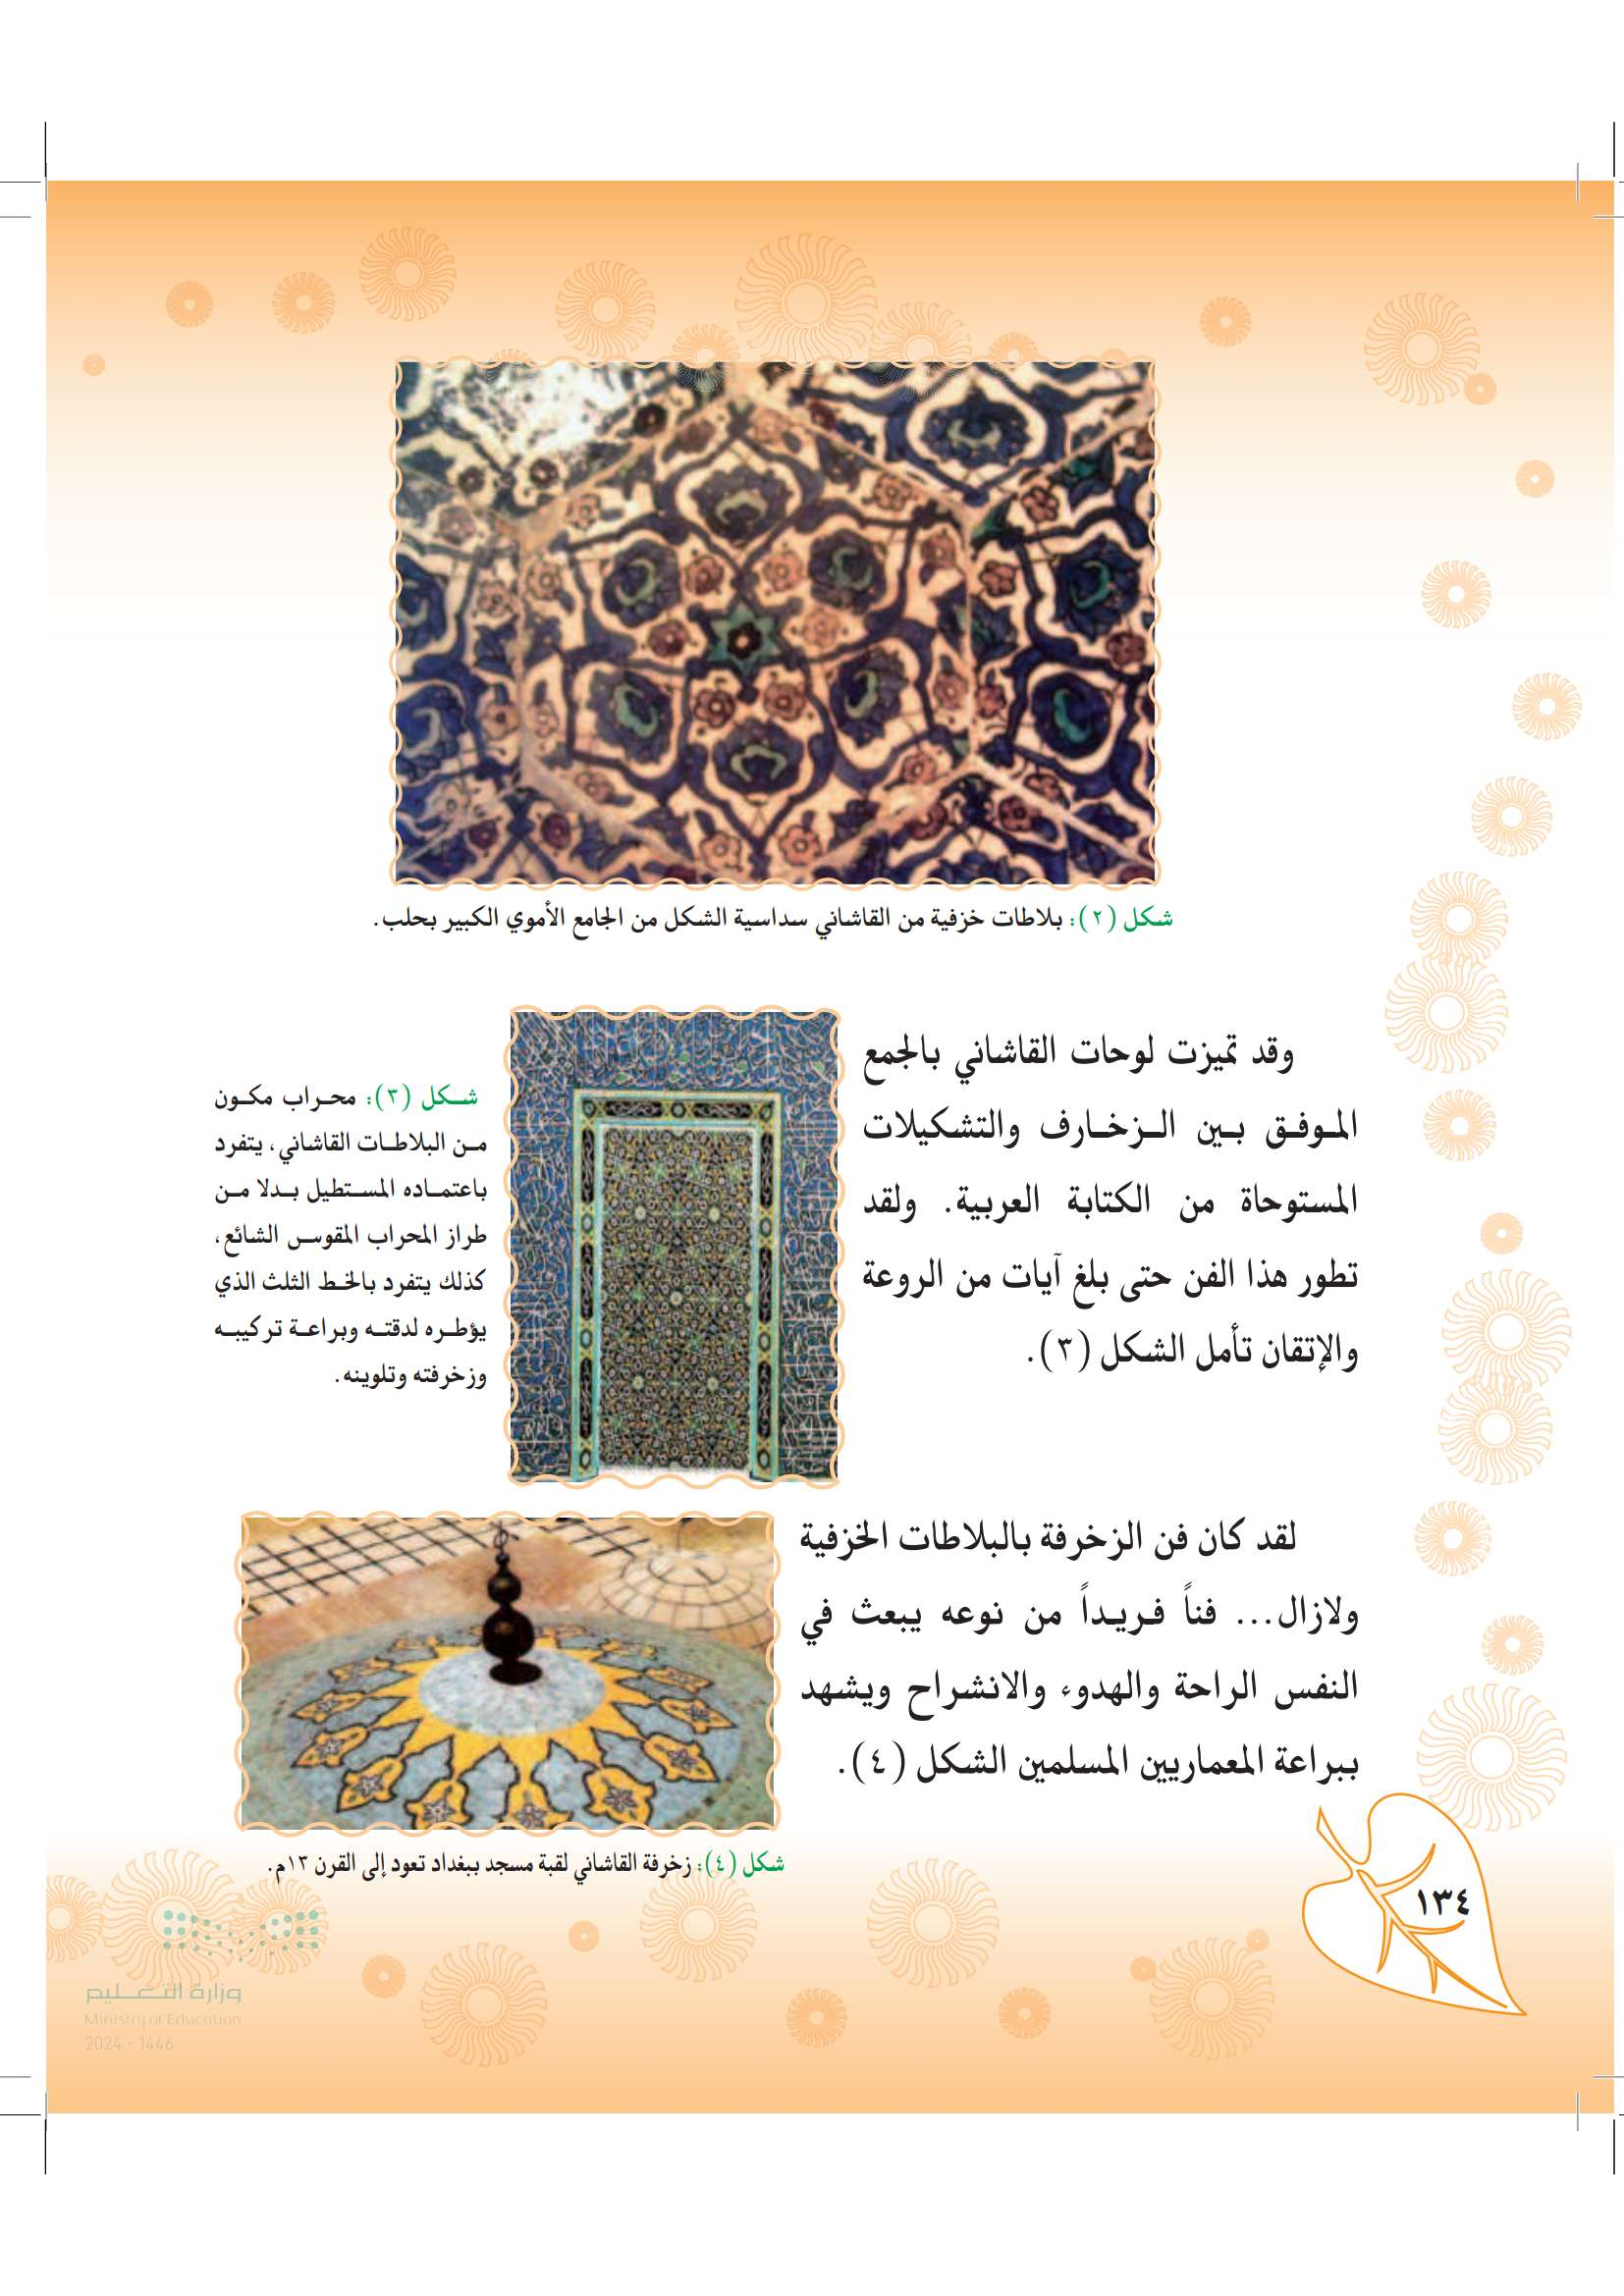 شكل (٢): بلاطات خزفية من القاشاني سداسية الشكل من الجامع الأموي الكبير بحلب.
وقد تميزت لوحات القاشاني بالجمع
الموفق بين الزخارف والتشكيلات
المستوحاة من الكتابة العربية. ولقد
تطور هذا الفن حتى بلغ آيات من الروعة
والإتقان تأمل الشكل (٣).
شكل (٣): محراب مكون
من البلاطات القاشاني، يتفرد
باعتماده المستطيل بدلا من
طراز المحراب المقوس الشائع،
كذلك يتفرد بالخط الثلث الذي
يؤطره لدقته وبراعة تركيبه
وزخرفته وتلوينه.
لقد كان فن الزخرفة بالبلاطات الخزفية
ولازال... فناً فريداً من نوعه يبعث في
النفس الراحة والهدوء والانشراح ويشهد
ببراعة المعماريين المسلمين الشكل (٤).
شكل (٤): زخرفة القاشاني لقبة مسجد ببغداد تعود إلى القرن ١٣م.
١٣٤
وزارة التعليم
Ministry of Education
2024 - 1446